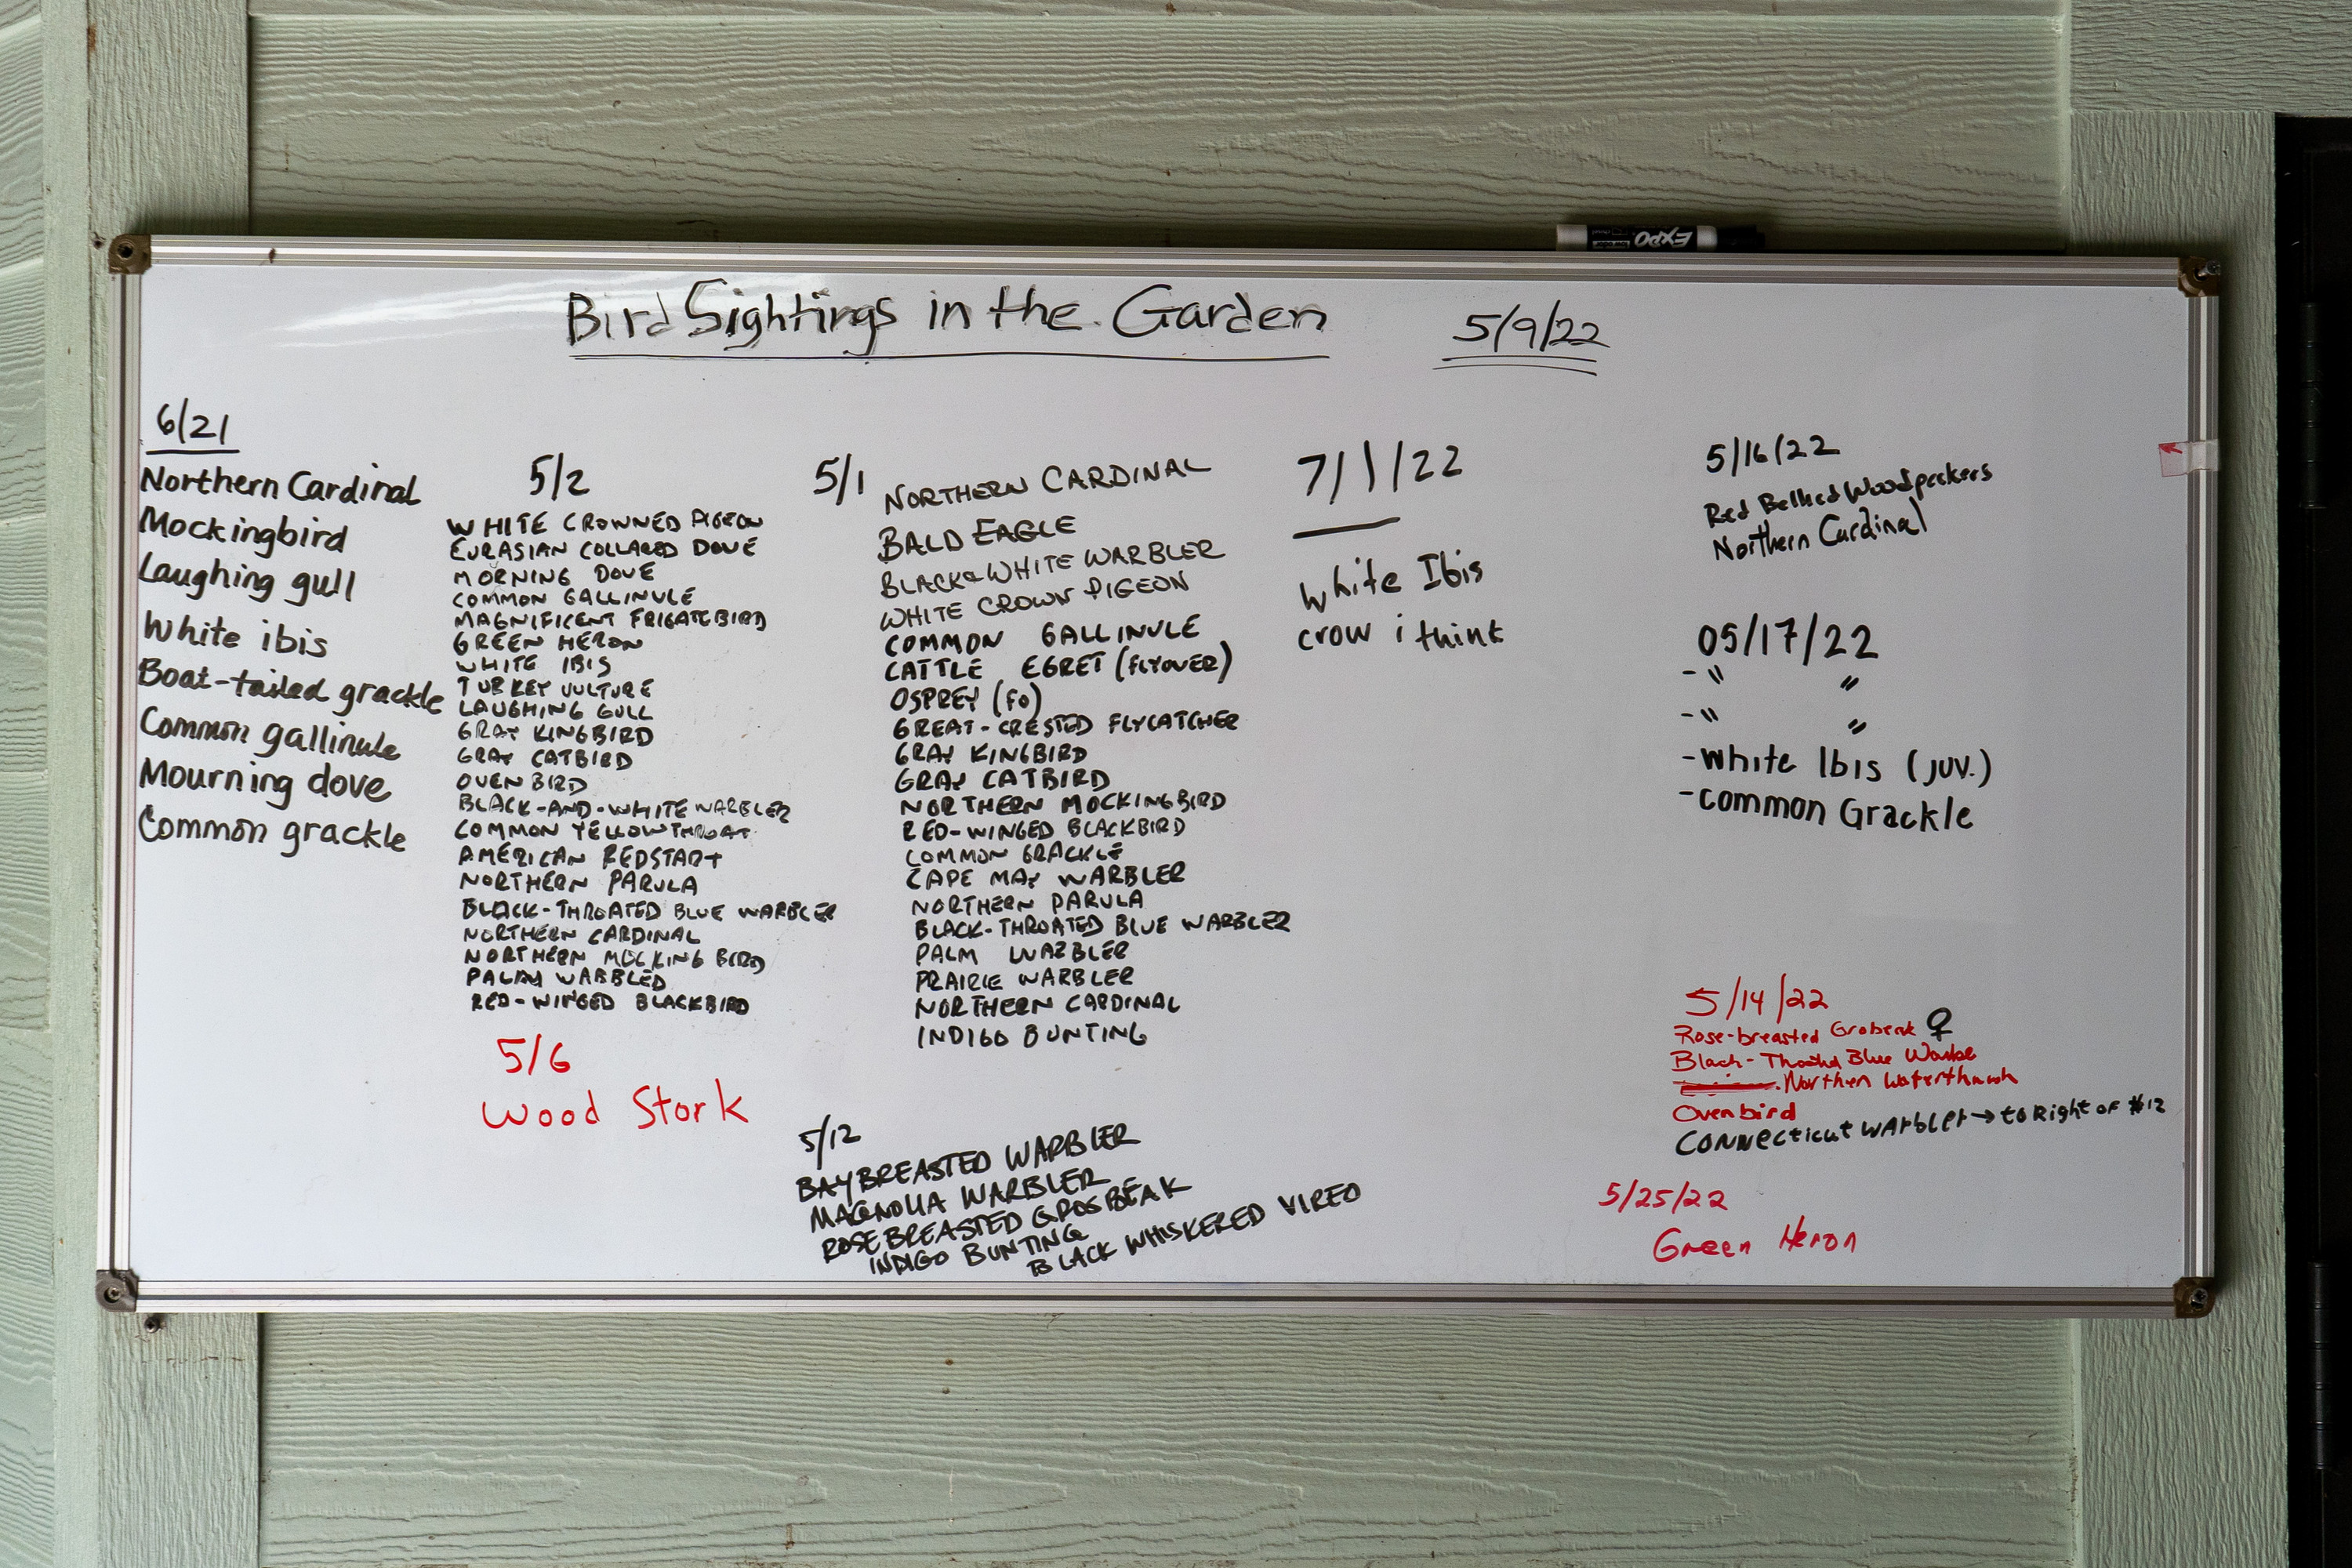 EXPO
Bird Sightings in the Garden
5/9/22
6/21
Northern Cardinal
Mockingbird
Laughing gull
White ibis
Boat-tailed grackle
Common gallinule
Mourning dove
Common grackle
5/2
WHITE CROWNED PIGEON
EURASIAN COLLARED DOVE
MORNING DOVE
COMMON GALLINULE
MAGNIFICENT FRIGATEBIRD
GREEN HERON
WHITE IBIS
TURKEY VULTURE
LAUGHING GULL
GRAY KINGBIRD
GRAY CATBIRD
OVENBIRD
BLACK-AND-WHITE WARBLER
COMMON YELLOWTHROAT
AMERICAN REDSTART
NORTHERN PARULA
BLACK-THROATED BLUE WARBLER
NORTHERN CARDINAL
NORTHERN MOCKING BIRD
PALM WARBLED
RED-WINGED BLACKBIRD
5/6
Wood Stork
5/1
NORTHERN CARDINAL
BALD EAGLE
BLACK & WHITE WARBLER
WHITE CROWN PIGEON
COMMON GALLINULE
CATTLE EGRET (FLYOVER)
OSPREY (FO)
GREAT-CRESTED FLYCATCHER
GRAY KINGBIRD
GRAY CATBIRD
NORTHERN MOCKINGBIRD
RED-WINGED BLACKBIRD
COMMON GRACKLE
CAPE MAY WARBLER
NORTHERN PARULA
BLACK-THROATED BLUE WARBLER
PALM WARBLER
PRAIRIE WARBLER
NORTHERN CARDINAL
INDIGO BUNTING
5/12
BAYBREASTED WARBLER
MAGNOLIA WARBLER
ROSEBREASTED GROSBEAK
INDIGO BUNTING
BLACK WHISKERED VIREO
7/1/22
White Ibis
crow i think
5/16/22
Red Bellied Woodpeckers
Northern Cardinal
05/17/22
- " "
- " "
- White Ibis (JUV.)
- Common Grackle
5/14/22
Rose-breasted Grobeak ♀
Black-Throated Blue Warble
Northern Waterthrush
Ovenbird
CONNecticut WArbler → to Right of #12
5/25/22
Green Heron